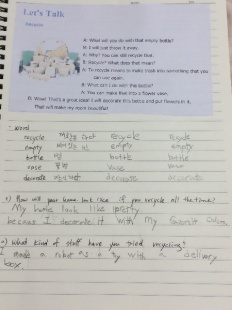 Let's Talk
A: What will you do with that empty bottle?
B: I will just throw it away.
A: Why? You can still recycle that.
B: Recycle? What does that mean?
A: To recycle means to make trash into something that you
can use again.
B: What can I do with this bottle?
A: You can make that into a flower vase.
B: Wow! That's a great idea! I will decorate this bottle and put flowers in it.
That will make my room look
word
recycle recycle recycle
empty empty empty
bottle 병 bottle bottle
vase 꽃병 vase vase
decorate decorate decorate
1) How will your home look like if you recycle all the time?
My home look like pretty
because I decorate it with my favorite
2) What kind of stuff have you tried recycling?
I made a robot as a toy with a delivery
box.